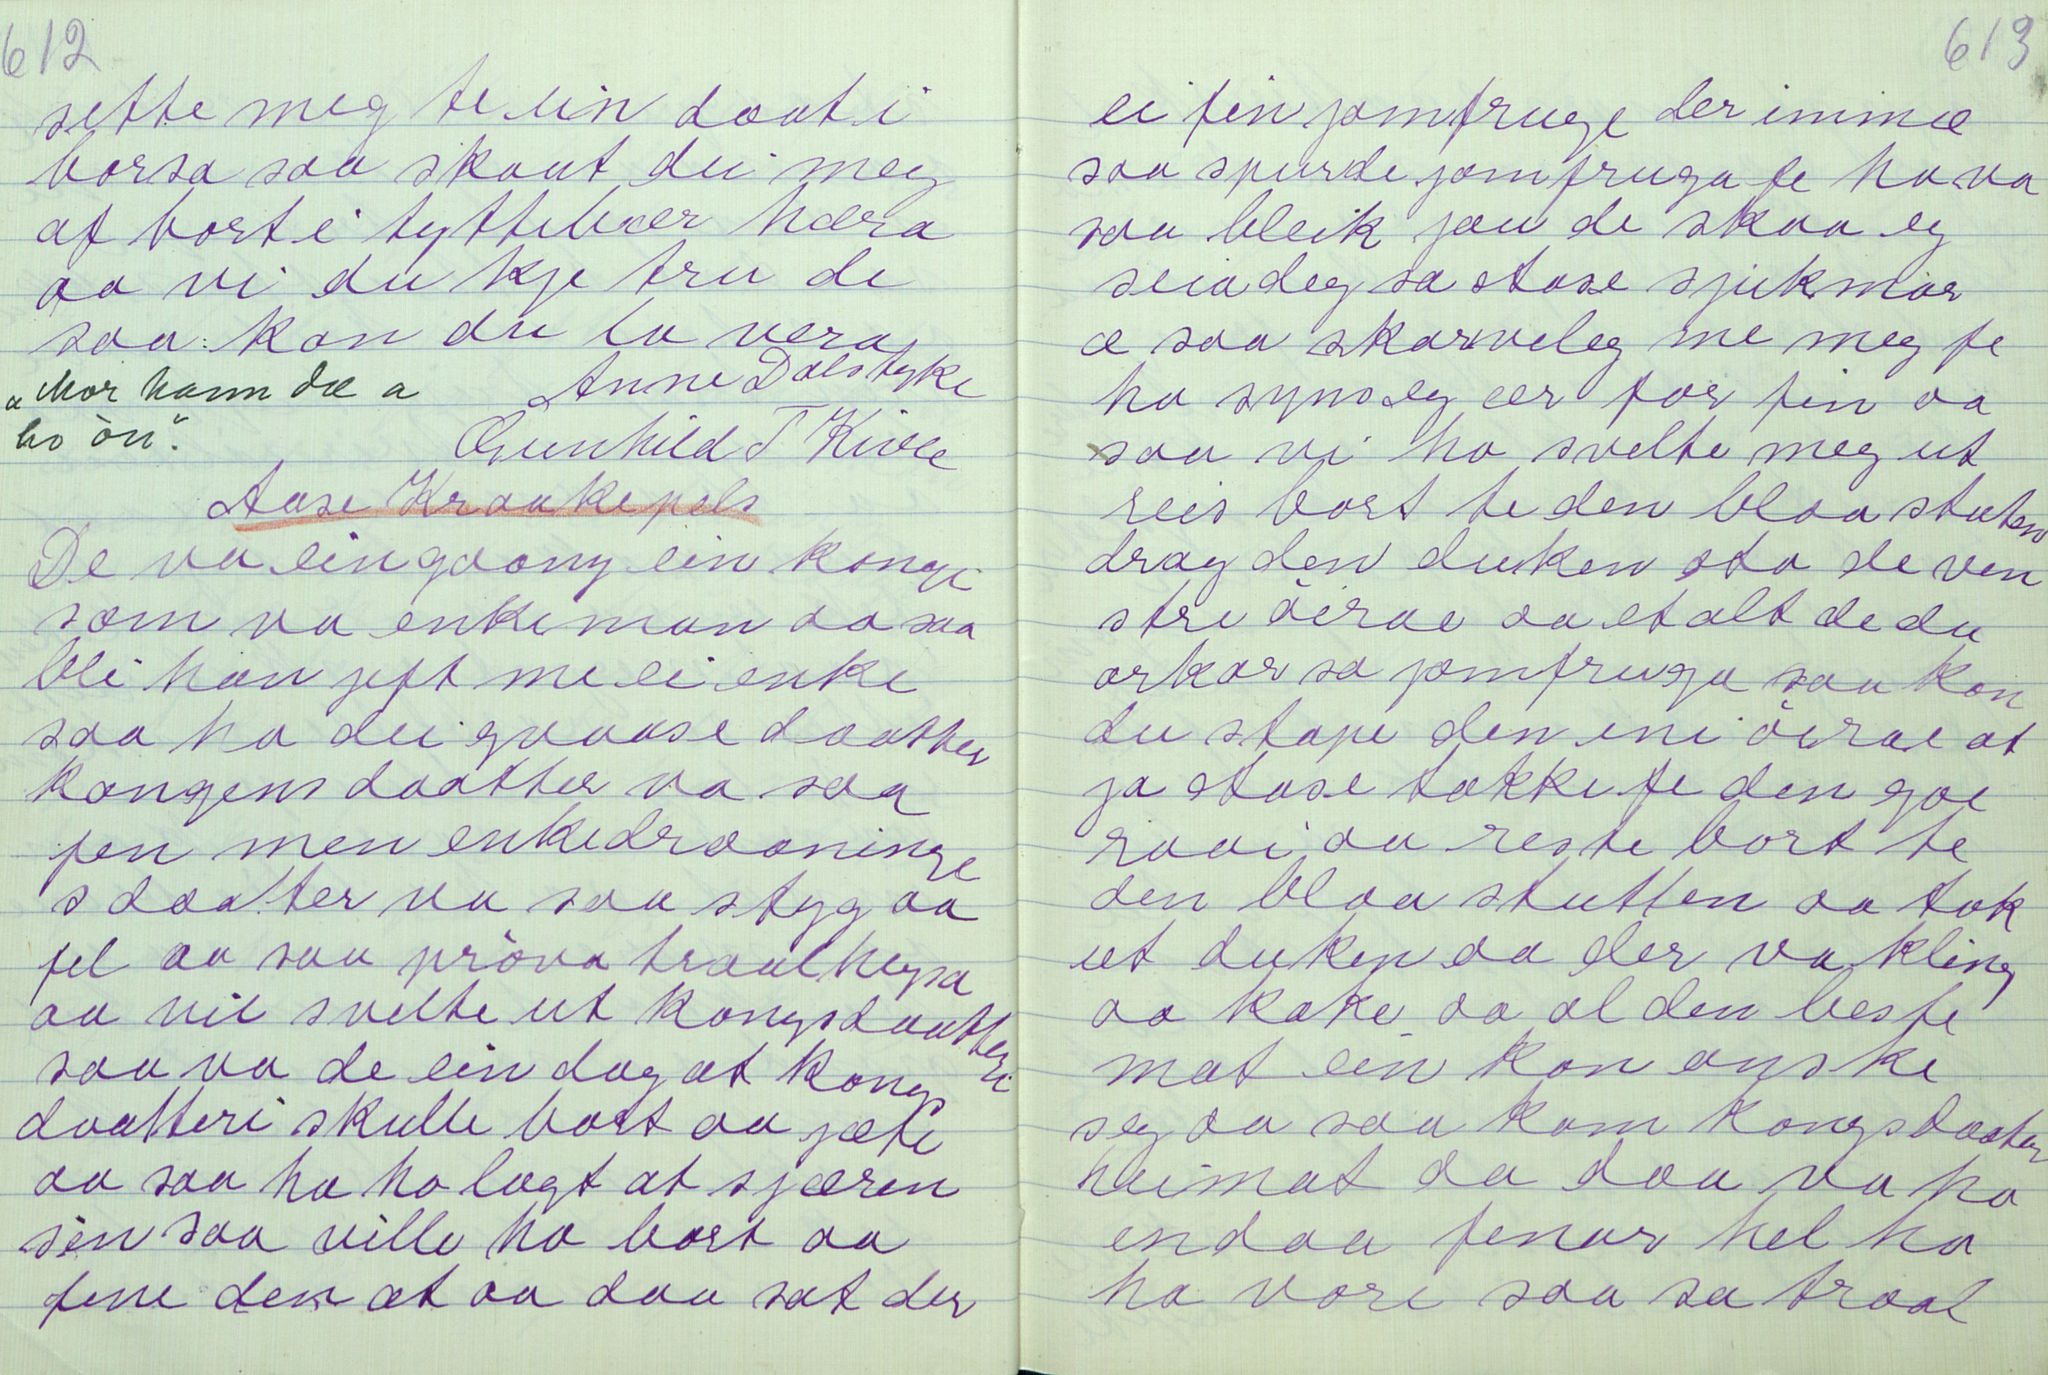 612
sette meg te ein daat i
borsa saa skaut dei meg
af bort i tyttebær hæra
aa vi du kje tru de
saa kan du la vera
Anne Dalstyke
"Mor hann dæ a
ho òn".
Gunhild T Kivle
Aase Kraakepels
De va ein gaang ein konge
som va enkeman aa saa
blei han jift me ei enke
saa ha dei qvaase daatter
kongens daatter va saa
fen men enkedraaninge
s daatter va saa styg aa
fel aa saa pròva traalkejsa
aa vil svelte ut kongsdaatteri
saa va de ein dag at kongs
daatteri skulle bort aa jæte
aa saa ha ho lagt at sjæren
sin saa ville ho bort aa
fine den at aa daa sat der
613
ei fin jomfruge der imme
saa spurde jomfruga fe ho va
saa bleik jau de skaa eg
seia deg sa stase sjukmor
æ saa skarveleg me meg fe
ho syns eg ær for fin aa
saa vi ho svelte meg ut
reis bort te den blaa stuten
drag den duken sta de ven
stre òirae aa et alt de du
orkar sa jomfruga saa kan
du stape den ini òirae at
ja stase takke fe den goe
raai aa reste bort te
den blaa stutten aa tok
ut duken aa der va kling
aa kake aa al den beste
mat ein kan ønske
seg aa saa kom kongsdaater
heimat aa daa va ho
endaa fenar hel ho
ha vore saa sa traal